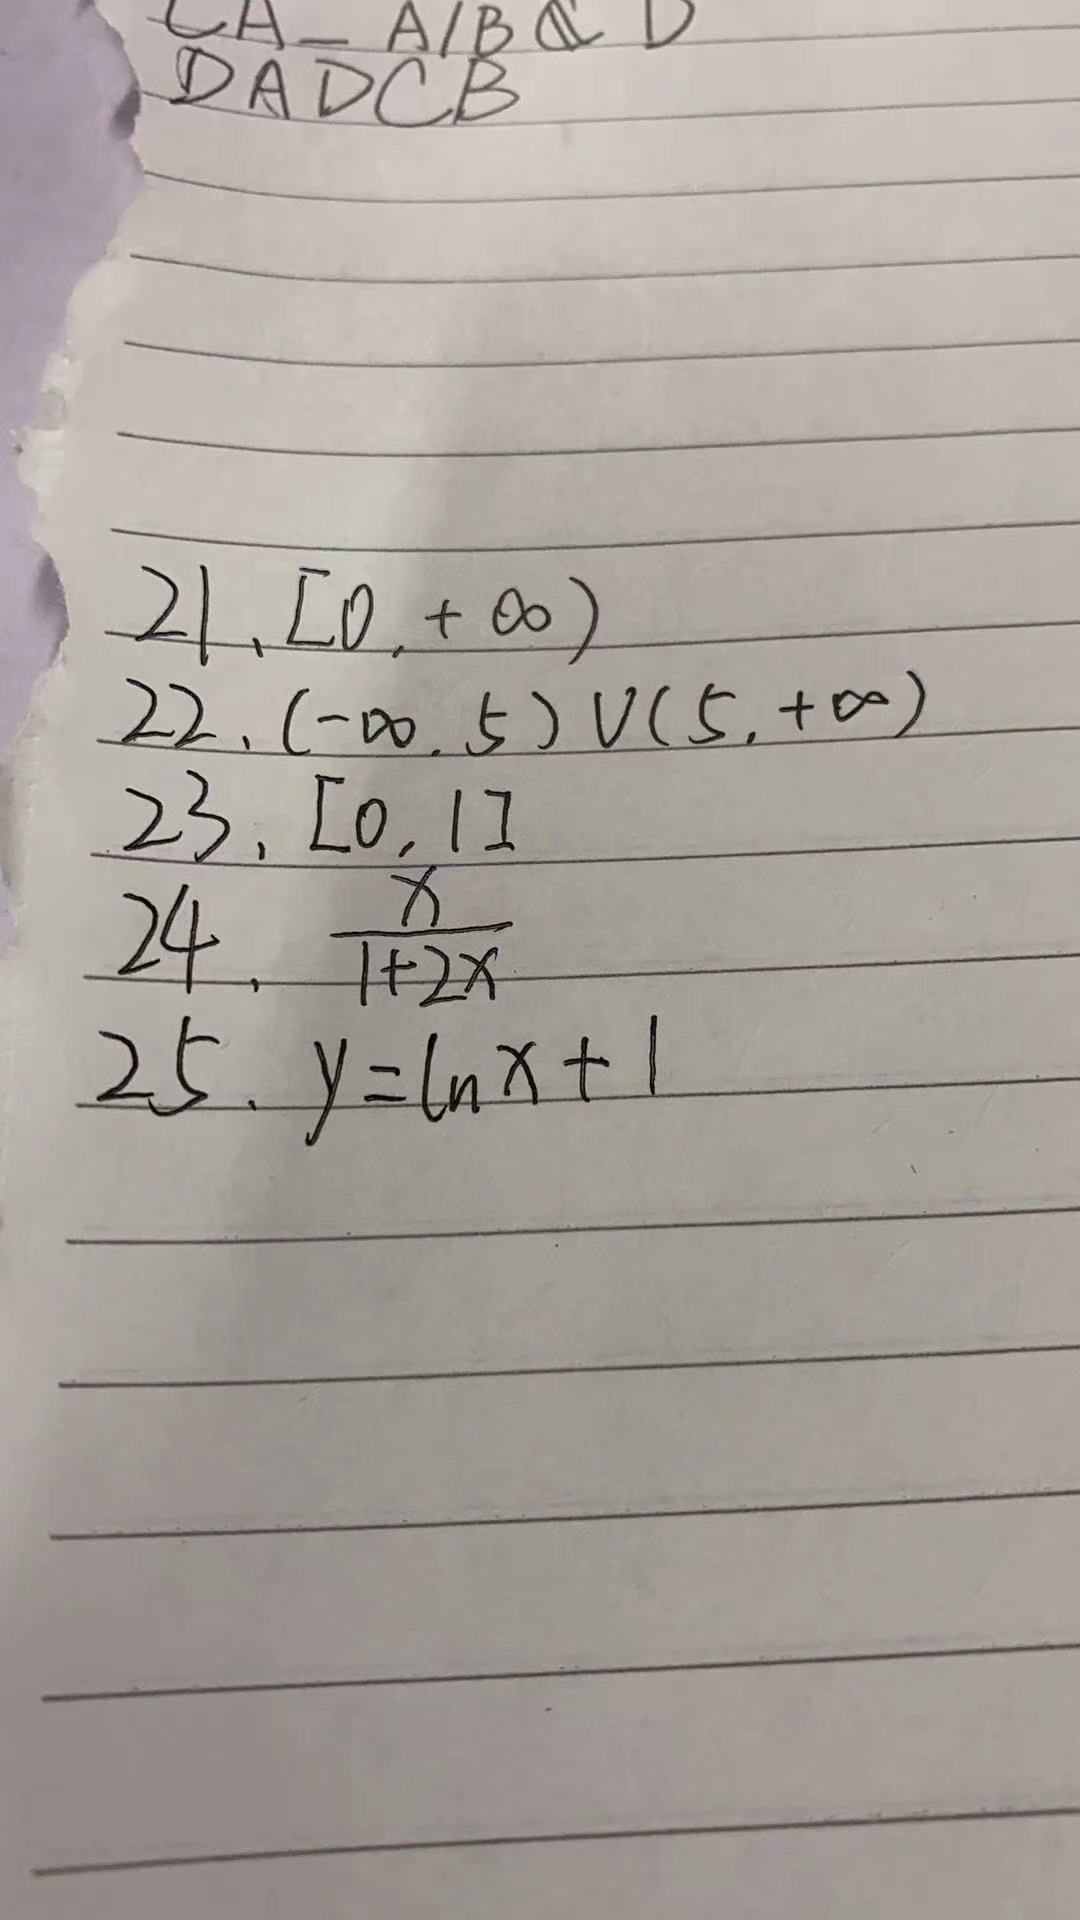 CA_ A/B D
DADCB
21、[0,+∞)
22、(-∞,5)∪(5,+∞)
23、[0,1]
24、x/(1+2x)
25、y=lnx+1